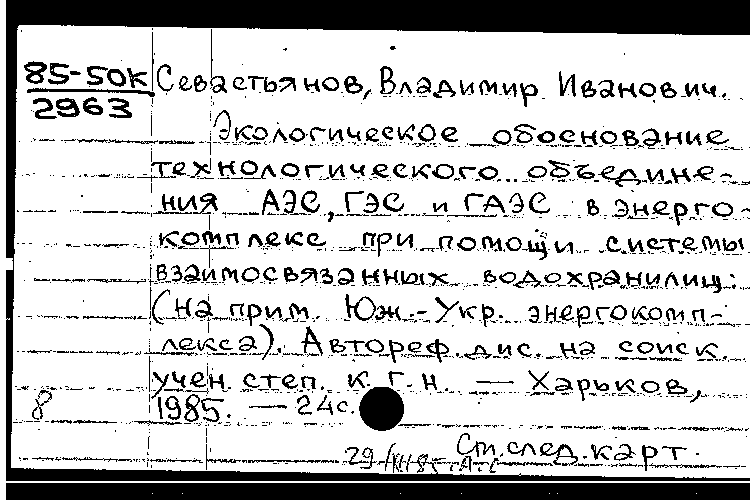 85-50к Севастьянов, Владимир Иванович.
2963
Экологическое обоснование
технологического объедине-
ния АЭС, ГЭС и ГАЭС в энерго-
комплекс при помощи системы
взаимосвязанных водохранилищ:
(на прим. Юж.-Укр. энергокомп-
лекса). Автореф. дис. на соиск.
учен. степ. к. г. н. — Харьков,
8 1985. — 24с.
См. след. карт.
29/